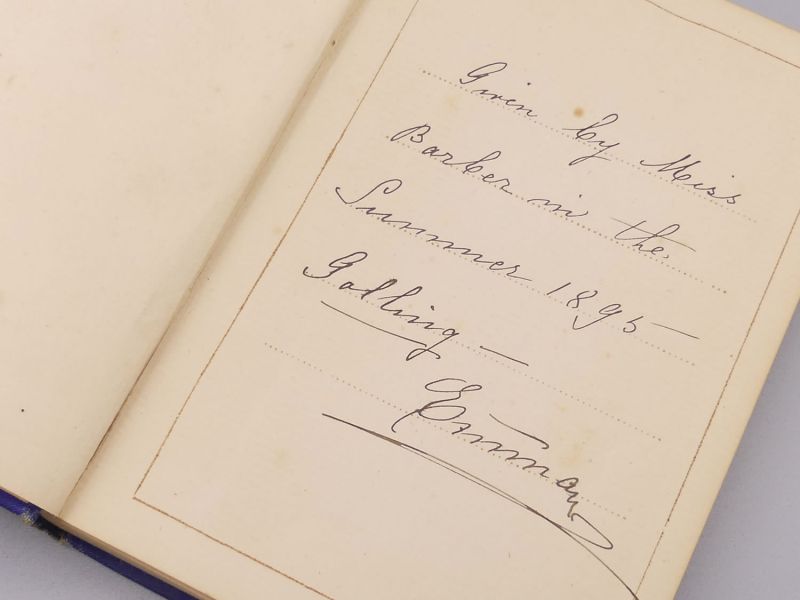 Given by Miss
Barber in the
Summer 1895 —
Golling —